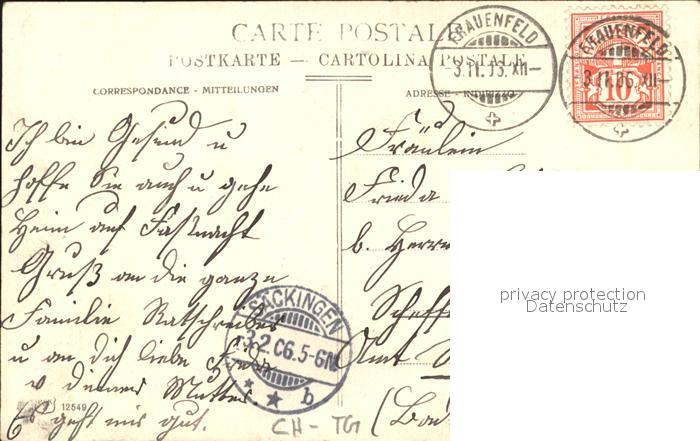 CARTE POSTALE
POSTKARTE — CARTOLINA POSTALE
CORRESPONDANCE - MITTEILUNGEN
ADRESSE - INDIRIZZO
FRAUENFELD
3.II.
XII—
FRAUENFELD
3.II.06.XII—
10
Ich bin Gesund u
hoffe Sie auch u gehe
Heim auf Fastnacht
Gruß an die ganze
Familie Ratschreiber
u an dich liebe Frida
v deiner Mutter
Es geht mir gut.
Fräulein
Frieda
b. Herrn
Amt
(Bad
SÄCKINGEN
3.2.06.5-6N
b
12549
CH - TG
privacy protection
Datenschutz